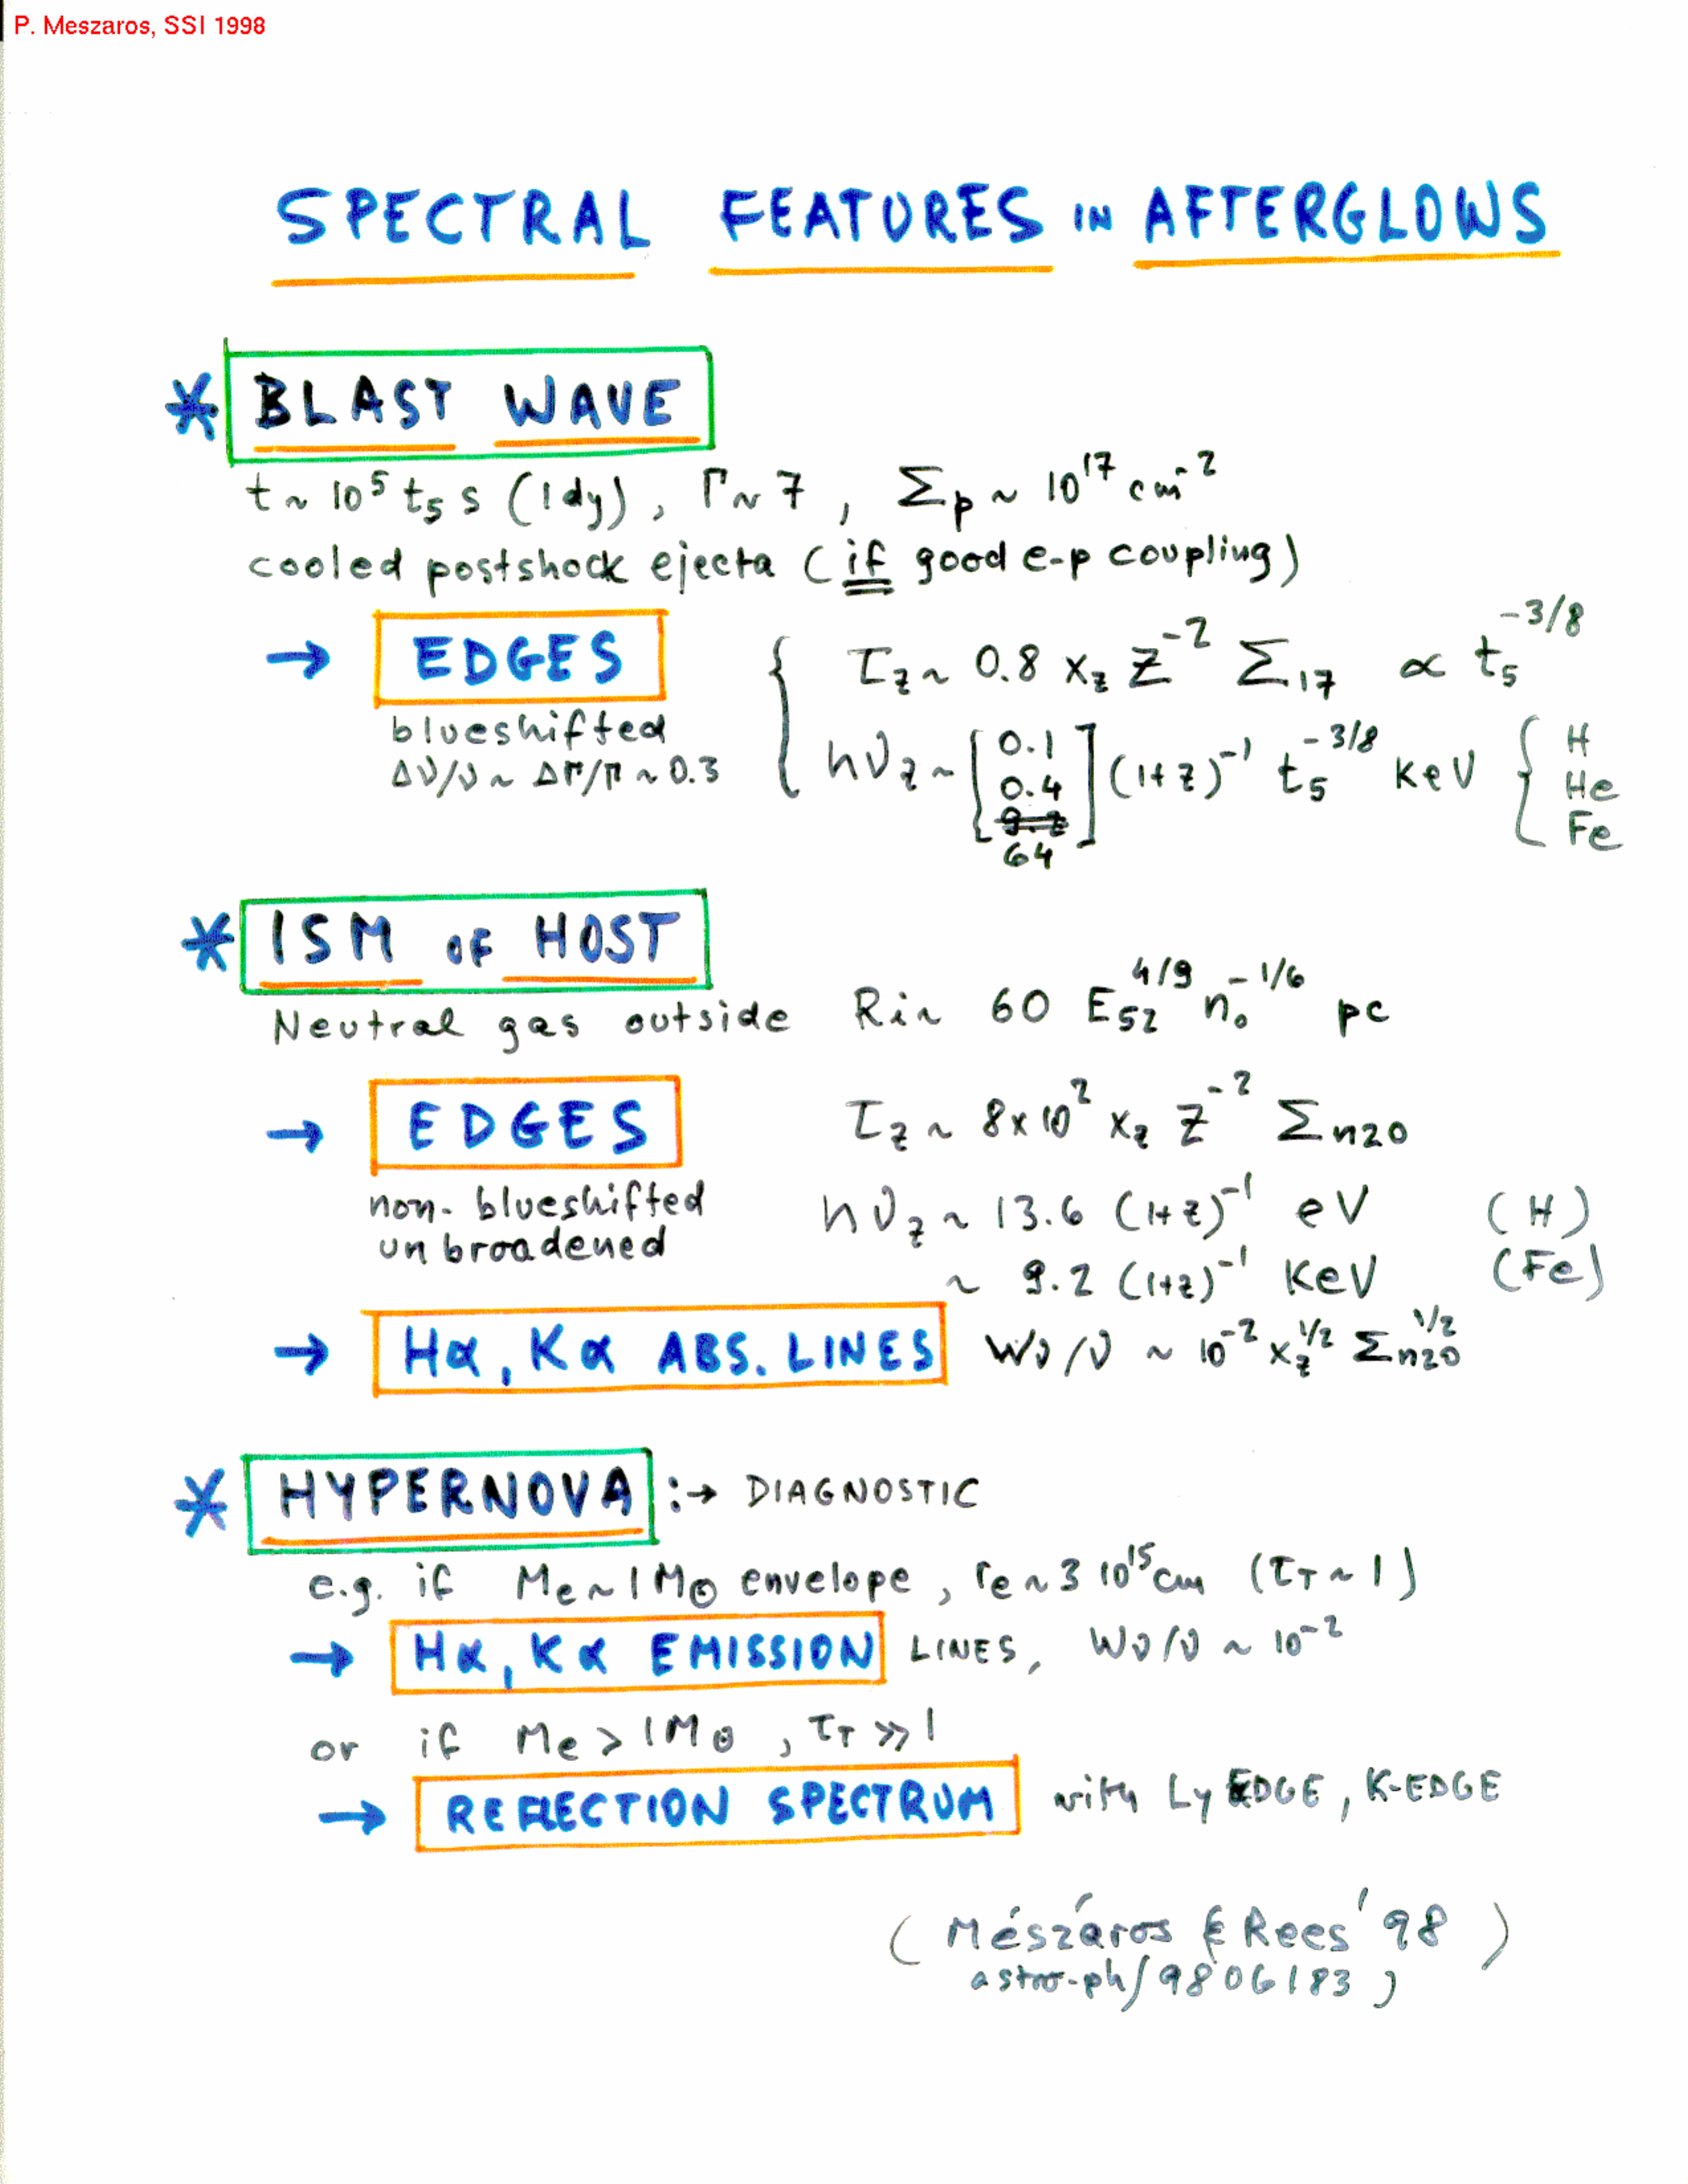 P. Meszaros, SSI 1998
SPECTRAL FEATURES IN AFTERGLOWS
* BLAST WAVE
t ~ 10⁵ t₅ s (1dy), Γ ~ 7, Σₚ ~ 10¹⁷ cm⁻²
cooled postshock ejecta (if good e-p coupling)
→ EDGES { τ_z ~ 0.8 x_z Z⁻² Σ₁₇ ∝ t₅^(-3/8)
blueshifted
Δν/ν ~ ΔΓ/Γ ~ 0.3
hν_z ~ [0.1 0.4 64] (1+z)⁻¹ t₅^(-3/8) KeV { H He Fe
* ISM OF HOST
Neutral gas outside Ri ~ 60 E₅₂^(4/9) n₀^(-1/6) pc
→ EDGES τ_z ~ 8x10² x_z Z⁻² Σn20
non-blueshifted
unbroadened
hν_z ~ 13.6 (1+z)⁻¹ eV (H)
~ 9.2 (1+z)⁻¹ KeV (Fe)
→ Hα, Kα ABS. LINES Wν/ν ~ 10⁻² x_z^(1/2) Σn20^(1/2)
* HYPERNOVA :→ DIAGNOSTIC
e.g. if Me ~ 1M⊙ envelope, re ~ 3 10¹⁵cm (τ_T ~ 1)
→ Hα, Kα EMISSION LINES, Wν/ν ~ 10⁻²
or if Me > 1M⊙, τ_T ≫ 1
→ REFLECTION SPECTRUM with Ly EDGE, K-EDGE
(Mészáros & Rees '98)
astro-ph/9806183)